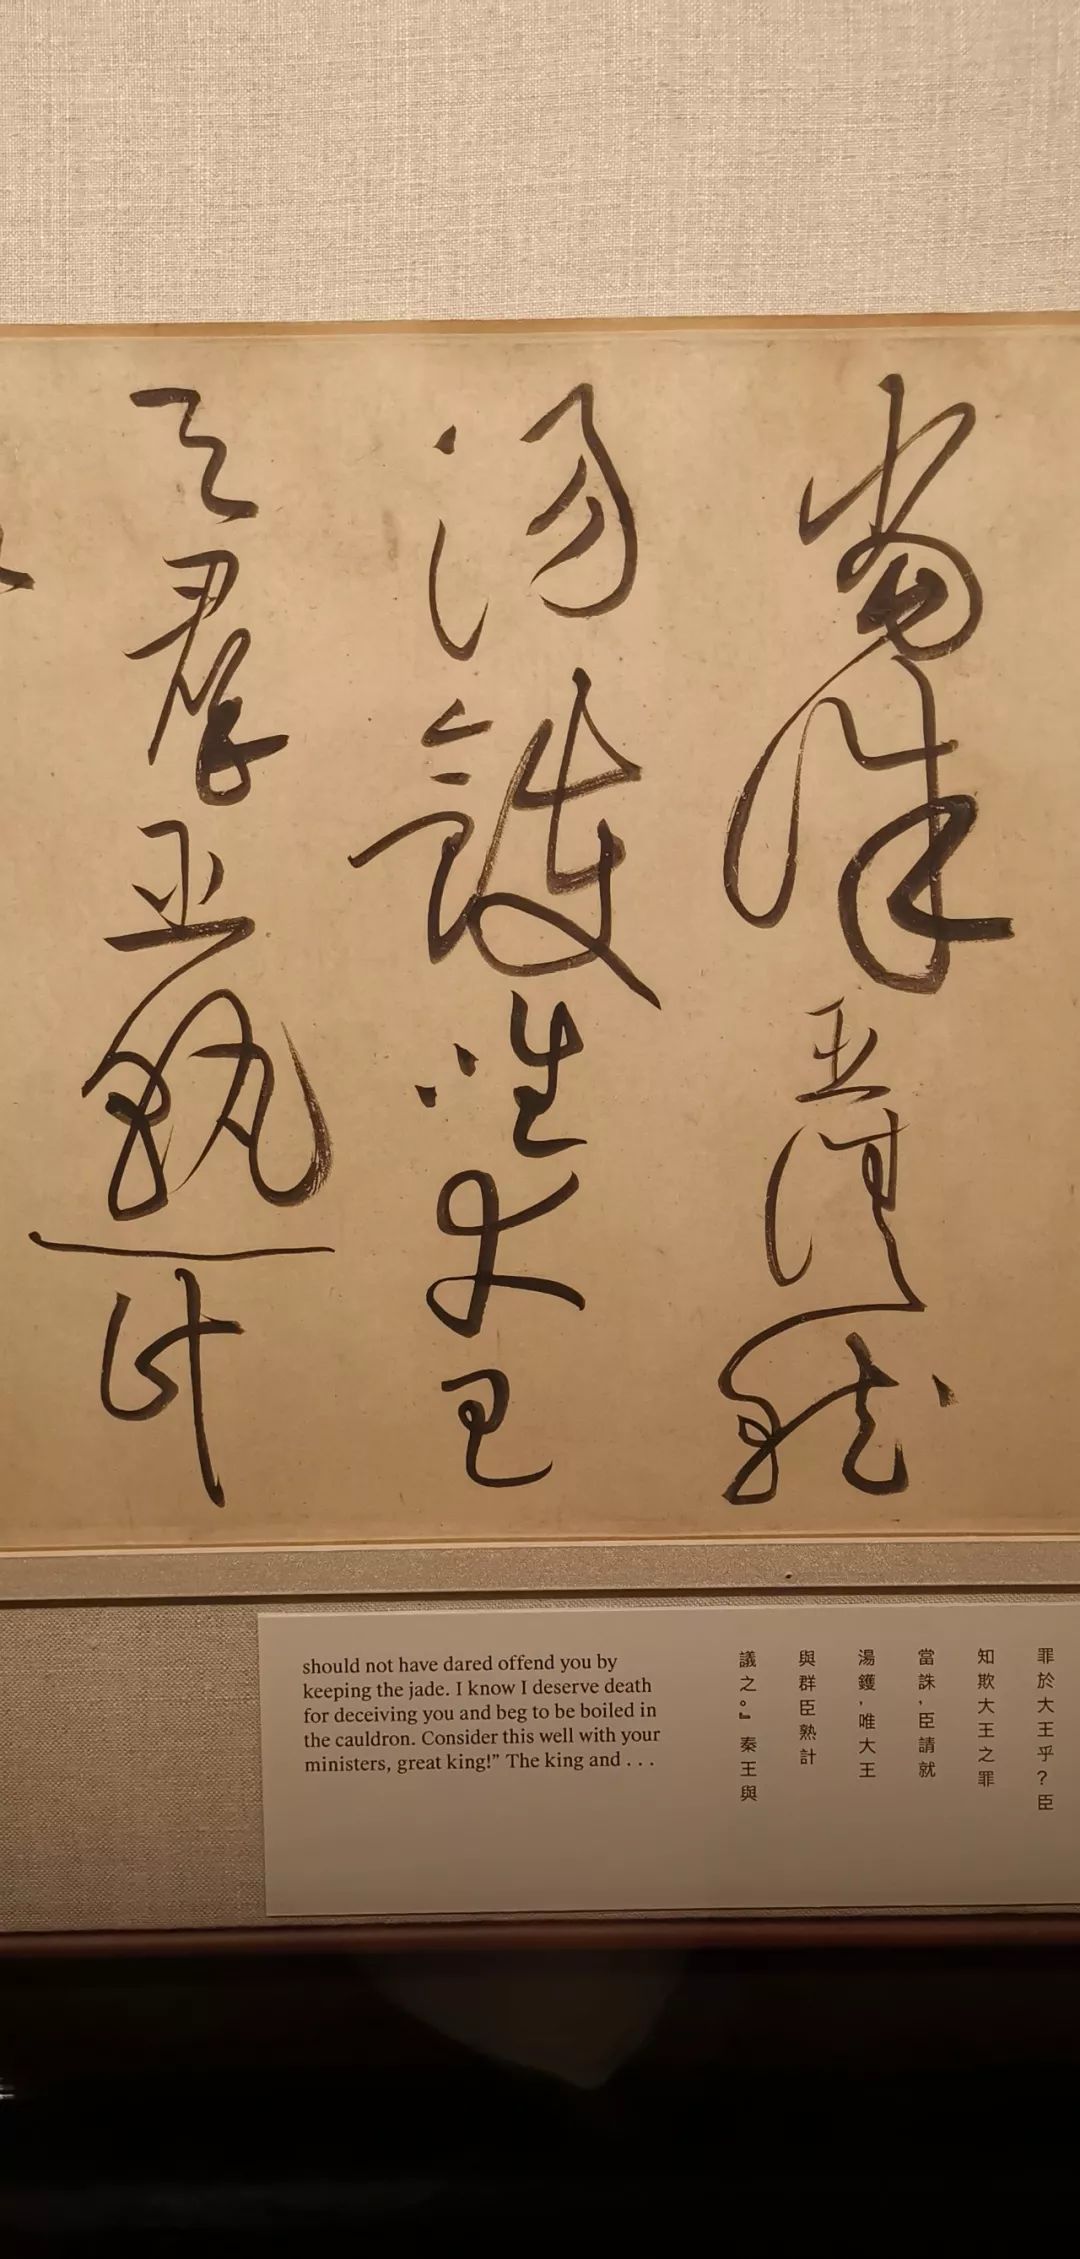 當誅臣請就
湯鑊唯大王
與群臣熟計
should not have dared offend you by
keeping the jade. I know I deserve death
for deceiving you and beg to be boiled in
the cauldron. Consider this well with your
ministers, great king!” The king and . . .
罪於大王乎?臣
知欺大王之罪
當誅，臣請就
湯鑊，唯大王
與群臣熟計
議之。』秦王與